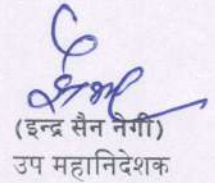 (इन्द्र सैन नेगी)
उप महानिदेशक